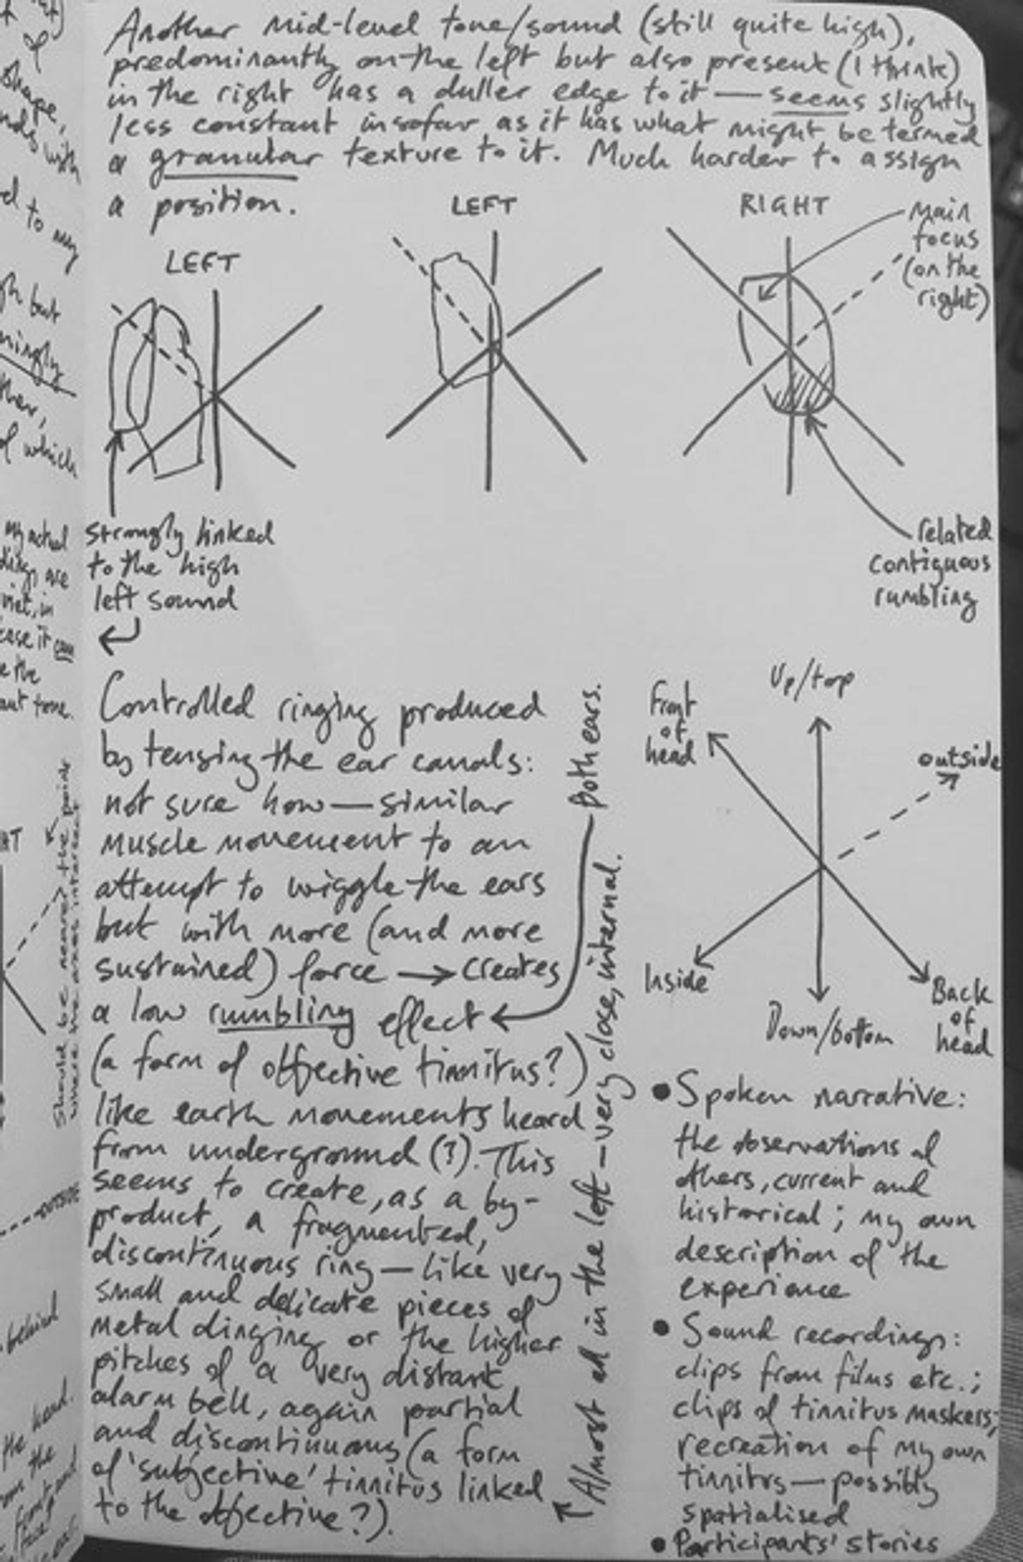 Another mid-level tone/sound (still quite high),
predominantly on the left but also present (I think)
in the right has a duller edge to it — seems slightly
less constant insofar as it has what might be termed
a granular texture to it. Much harder to assign
a position.
LEFT
LEFT
RIGHT
Main
focus
(on the
right)
strongly linked
to the high
left sound
related
contiguous
rumbling
Controlled ringing produced
by tensing the ear canals:
not sure how — similar
muscle movement to an
attempt to wiggle the ears
but with more (and more
sustained) force → creates
a low rumbling effect
(a form of objective tinnitus?)
like earth movements heard
from underground (?). This
seems to create, as a by-
product, a fragmented,
discontinuous ring — like very
small and delicate pieces of
metal dinging or the higher
pitches of a very distant
alarm bell, again partial
and discontinuous (a form
of 'subjective' tinnitus linked
to the objective?).
Both ears.
Almost all in the left — very close, internal.
Up/top
Front
of
head
outside
Inside
Down/bottom
Back
of
head
• Spoken narrative:
the observations of
others, current and
historical; my own
description of the
experience
• Sound recordings:
clips from films etc.;
clips of tinnitus maskers;
recreation of my own
tinnitus — possibly
spatialised
• Participants' stories
shape,
to my
but
of which
my actual
are
in
case it can
the
tone.
Should be nearer the point
where the axes intersect
OUTSIDE
behind
the head.
the